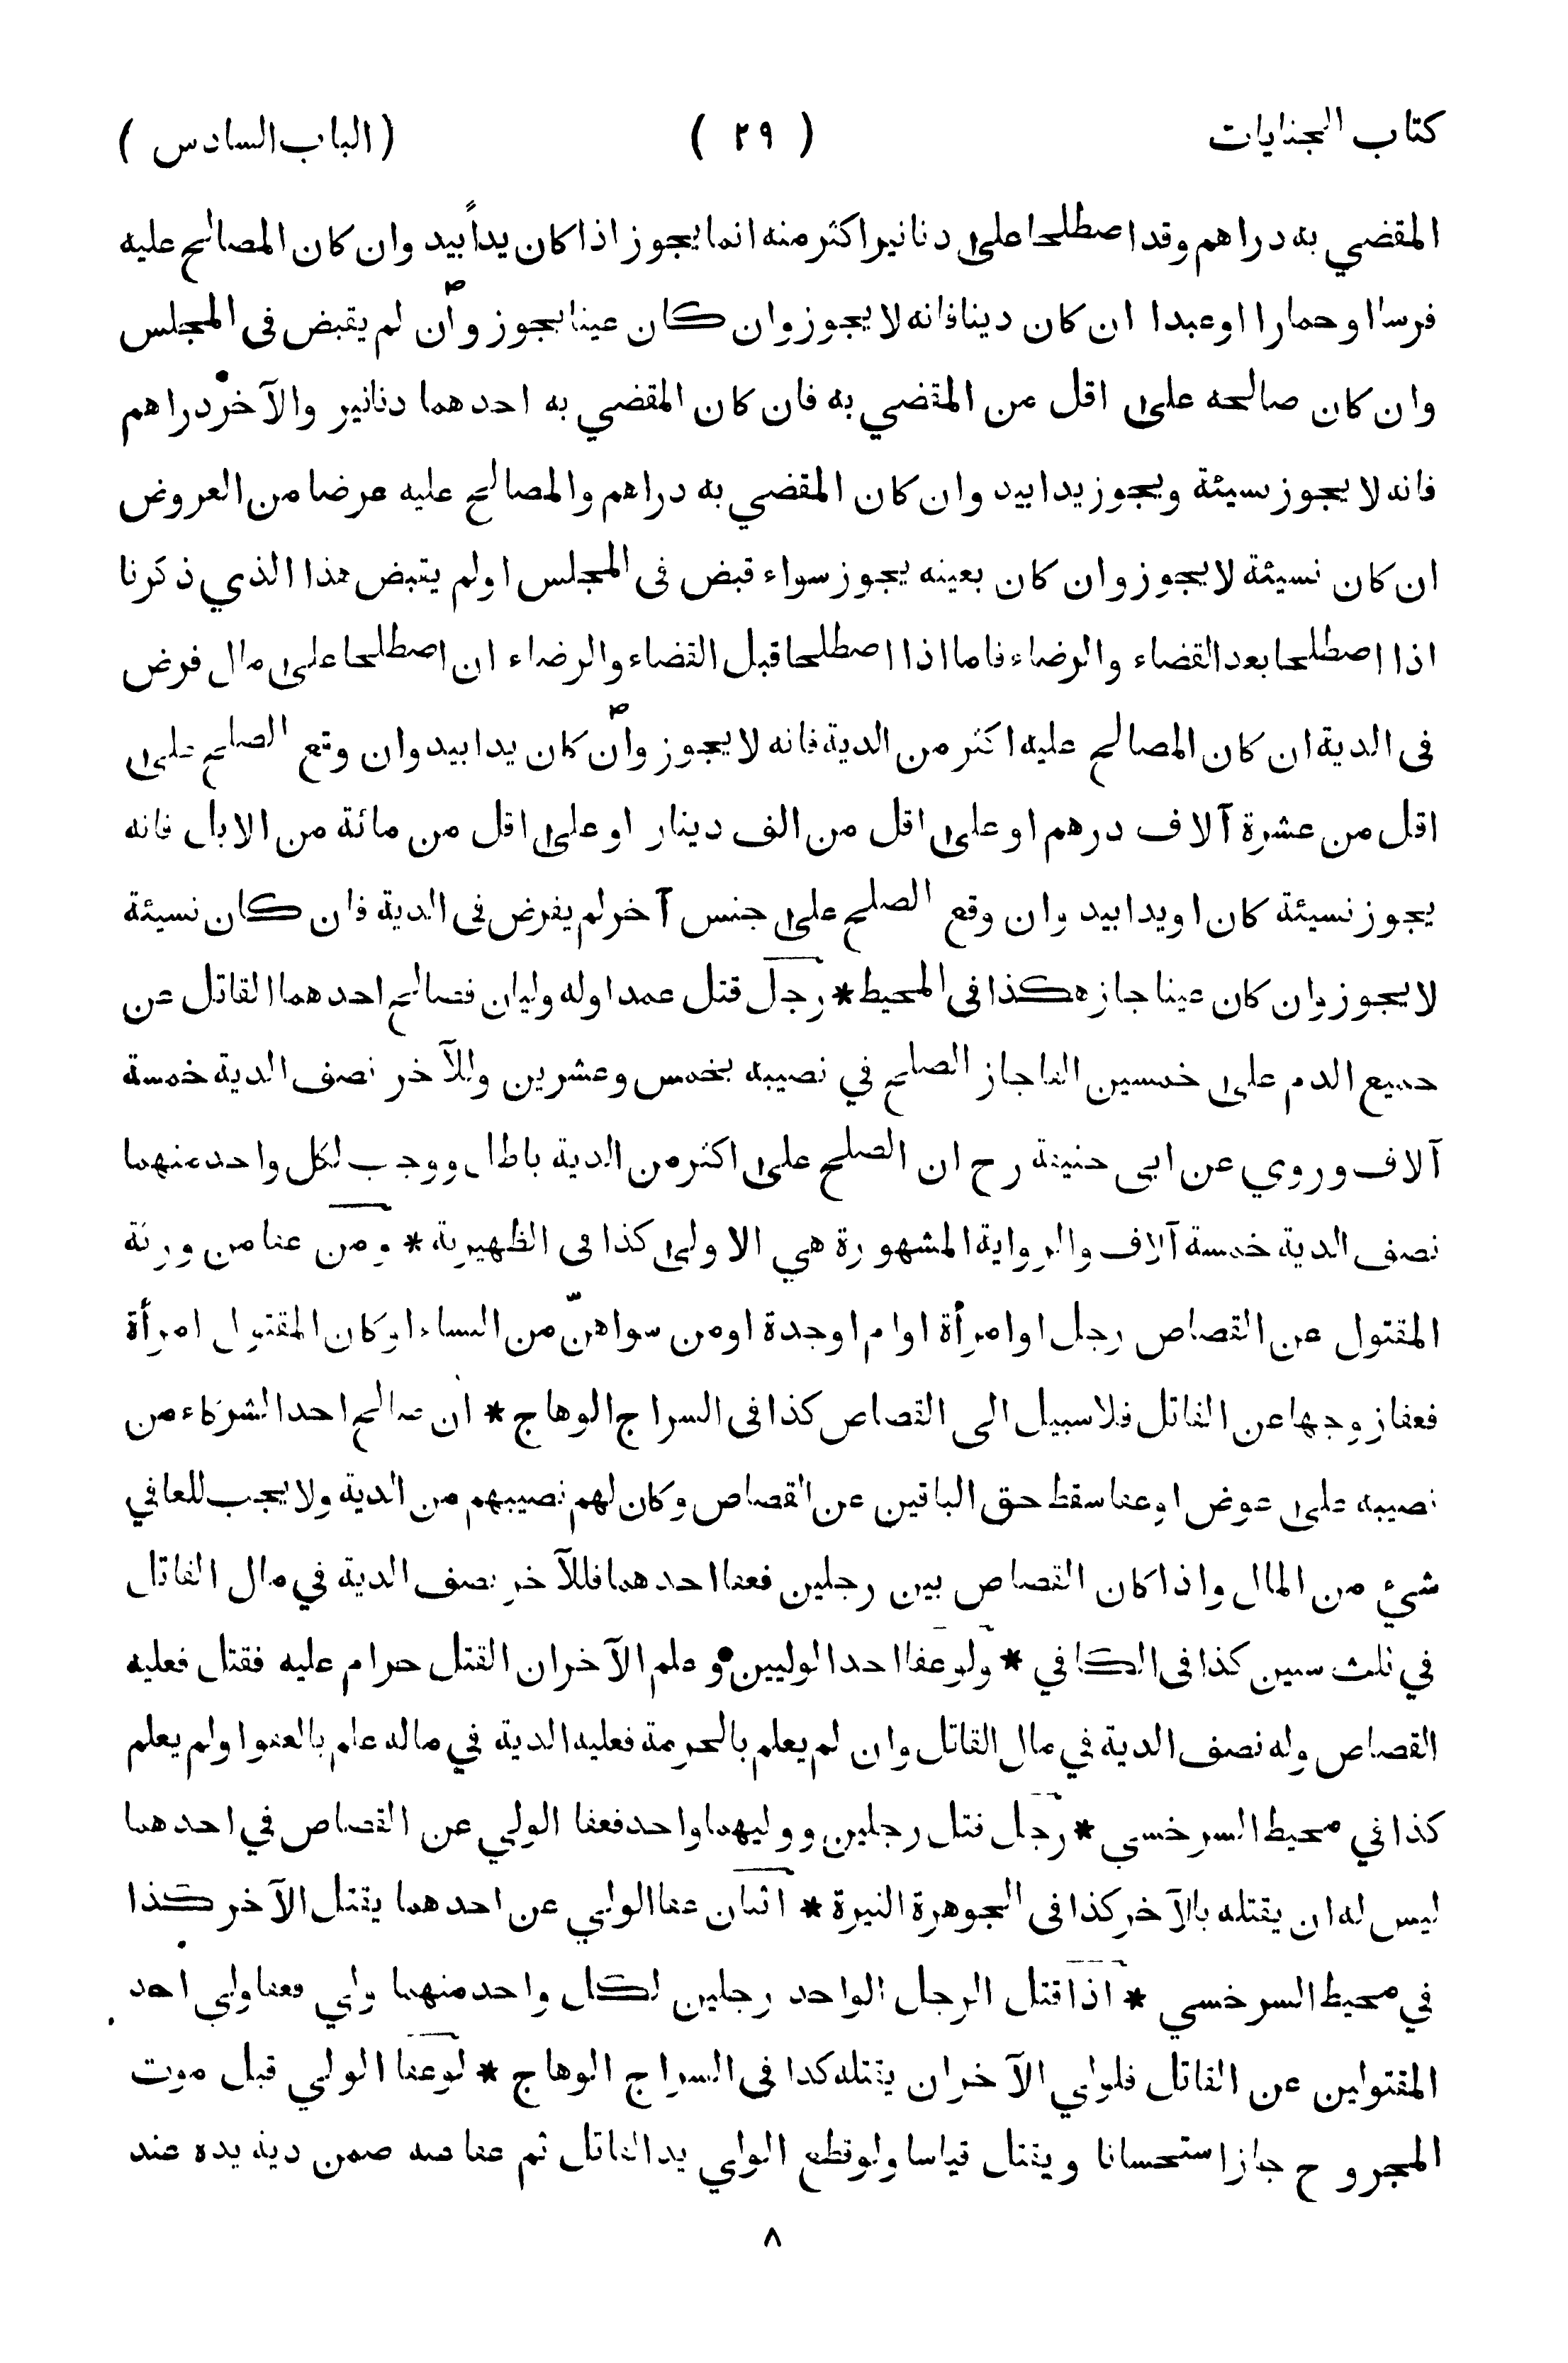 كتاب الجنايات ( ٢٩ ) ( الباب السادس )
المقضي به دراهم وقد اصطلحا على دنانير اكثر منه انما يجوز اذا كان يداً بيد وان كان المصالح عليه
فرسا او حمارا او عبدا ان كان دينا فانه لا يجوز وان كان عينا يجوز وان لم يقبض فى المجلس
وان كان صالحه على اقل من المقضي به فان كان المقضي به احدهما دنانير والآخر دراهم
فانه لا يجوز نسيئة ويجوز يدا بيد وان كان المقضي به دراهم والمصالح عليه عرضا من العروض
ان كان نسيئة لا يجوز وان كان بعينه يجوز سواء قبض فى المجلس او لم يقبض هذا الذي ذكرنا
اذا اصطلحا بعد القضاء والرضاء فاما اذا اصطلحا قبل القضاء والرضاء ان اصطلحا على مال فرض
فى الدية ان كان المصالح عليه اكثر من الدية فانه لا يجوز وان كان يدا بيد وان وقع الصلح على
اقل من عشرة آلاف درهم او على اقل من الف دينار او على اقل من مائة من الابل فانه
يجوز نسيئة كان او يدا بيد وان وقع الصلح على جنس آخر لم يفرض فى الدية فان كان نسيئة
لا يجوز وان كان عينا جاز هكذا فى المحيط * رجل قتل عمدا وله وليان فصالح احدهما القاتل عن
جميع الدم على خمسين الفا جاز الصلح في نصيبه بخمس وعشرين وللآخر نصف الدية خمسة
آلاف وروي عن ابى حنيفة رح ان الصلح على اكثر من الدية باطل ووجب لكل واحد منهما
نصف الدية خمسة آلاف والرواية المشهورة هي الاولى كذا فى الظهيرية * ومن عفا من ورثة
المقتول عن القصاص رجل او امرأة او ام او جدة او من سواهنّ من النساء او كان المقتول امرأة
فعفا زوجها عن القاتل فلا سبيل الى القصاص كذا فى السراج الوهاج * ان صالح احد الشركاء من
نصيبه على عوض او عفا سقط حق الباقين عن القصاص وكان لهم نصيبهم من الدية ولا يجب للعافي
شيء من المال واذا كان القصاص بين رجلين فعفا احدهما فللآخر نصف الدية في مال القاتل
في ثلث سنين كذا فى الكافي * ولو عفا احد الوليين و علم الآخر ان القتل حرام عليه فقتل فعليه
القصاص وله نصف الدية في مال القاتل وان لم يعلم بالحرمة فعليه الدية في ماله علم بالعفو او لم يعلم
كذا في محيط السرخسي * رجل قتل رجلين ووليهما واحد فعفا الولي عن القصاص في احدهما
ليس له ان يقتله بالآخر كذا فى الجوهرة النيرة * اثنان عفا الولي عن احدهما يقتل الآخر كذا
في محيط السرخسي * اذا قتل الرجل الواحد رجلين لكل واحد منهما ولي فعفا ولي احد
المقتولين عن القاتل فلولي الآخر ان يقتله كذا فى السراج الوهاج * لو عفا الولي قبل موت
المجروح جاز استحسانا ويقتل قياسا ولو قطع الولي يد القاتل ثم عفا عنه ضمن دية يده عند
٨